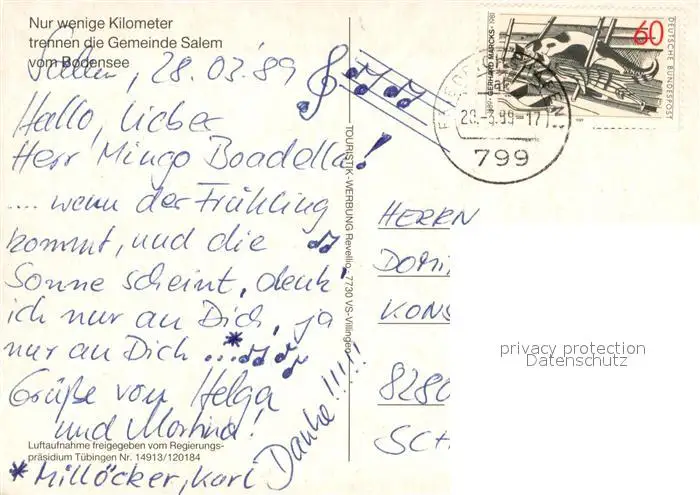 Nur wenige Kilometer
trennen die Gemeinde Salem
vom Bodensee
Salem, 28.03.89
Hallo, lieber
Herr Mingo Boadella!
.... wenn der Frühling
kommt, und die
Sonne scheint, denk'
ich nur an Dich, ja
nur an Dich ...*
Grüße von Helga
und Martina!
Danke!!!!!
Luftaufnahme freigegeben vom Regierungs-
präsidium Tübingen Nr. 14913/120184
* Millöcker, Karl
TOURISTIK-WERBUNG Revellio, 7730 VS-Villingen
60
DEUTSCHE BUNDESPOST
GERHARD MARCKS
799
HERRN
DOMI
KONS
8280
SC
privacy protection
Datenschutz